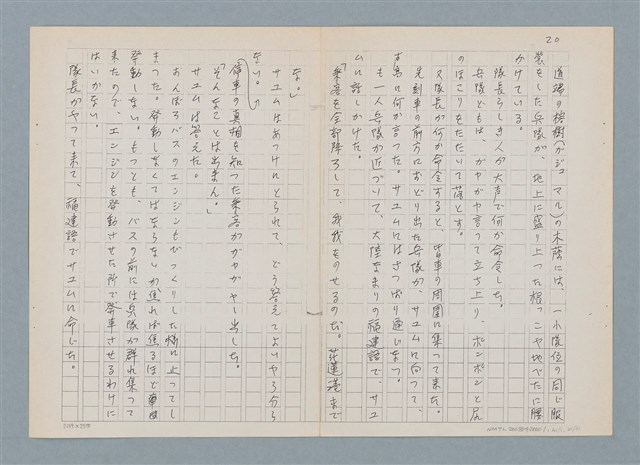 20
道端の榕樹(ガジュマル)の木蔭には、一小隊位の同じ服
装をした兵隊が、地上に盛り上った根っこや地べたに腰
かけている。
隊長らしき人が大声で何か命令した。
兵隊どもは、ガヤガヤ言って立ち上り、ポンポンと尻
のほこりをたたいて落とす。
又隊長が何か命令すると、皆車の周囲に集って来た。
先刻車の前方におどり出た兵隊が、サユムに向って、
声高に何か言った。サユムにはさっぱり通じなっ
も一人兵隊が近づいて、大陸なまりの福建語で、サユ
ムに話しかけた。
「乗客を全部降ろして、我我をのせるのだ。花蓮港まで
な。」
サユムはあっけにとられて、どう答えてよいやら分ら
ない。
停車の真相を知った乗客がガヤガヤし出した。
「そんなことは出来ん。」
サユムは答えた。
おんぼろバスのエンジンもびっくりした様に止ってし
まった。発動しなくてはならないが焦れば焦るほど
発動しない。もっとも、バスの前には兵隊が群れ集って
来たので、エンジンを発動させた所で発車させるわけに
はいかない。
隊長がやって来て、福建語でサユムに命じた。